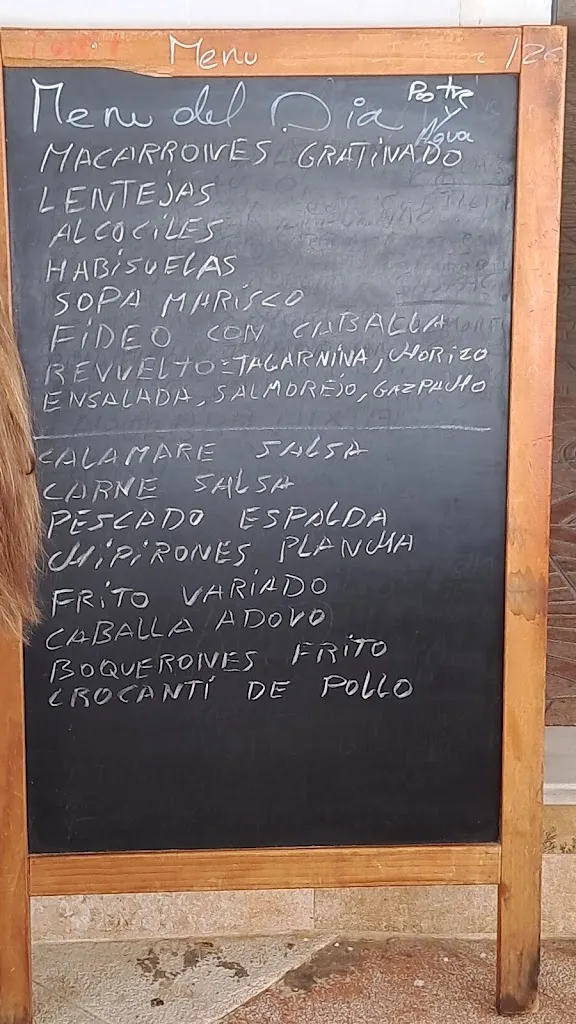 Menu /26
Menu del Dia
Postre
y
Agua
MACARRONES GRATINADO
LENTEJAS
ALCOCILES
HABISUELAS
SOPA MARISCO
FIDEO CON CABALLA
REVUELTO=TAGARNINA, CHORIZO
ENSALADA, SALMOREJO, GAZPACHO
CALAMARE SALSA
CARNE SALSA
PESCADO ESPALDA
CHIPIRONES PLANCHA
FRITO VARIADO
CABALLA ADOVO
BOQUERONES FRITO
CROCANTI DE POLLO